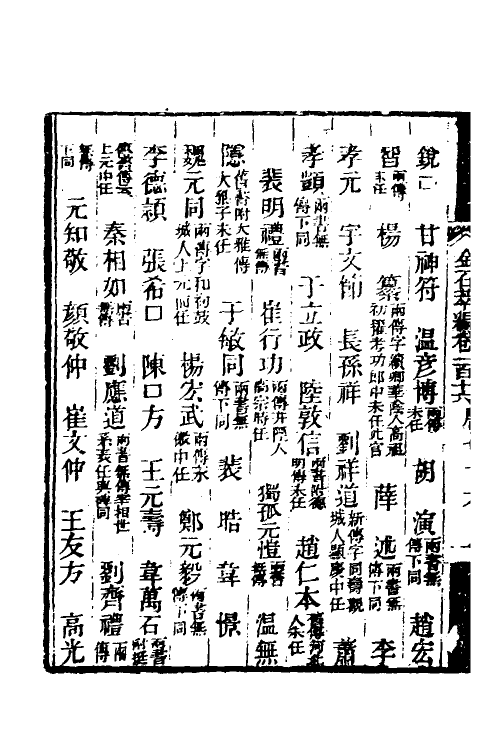 銳□ 甘神符 溫彥博兩傳未任 胡演兩書無傳下同 趙宏
智兩傳未任 楊纂兩傳字續卿華陰人高祖初擢考功郎中未任此官 薛述兩書無傳下同 李
孝元 宇文節 長孫祥 劉祥道新傳字同壽觀城人顯慶中任 蕭
孝顗兩書無傳下同 于立政 陸敦信兩書附德明傳未任 趙仁本舊傳河北人未任
裴明禮兩書無傳 崔行功兩傳井陘人高宗時任 獨孤元愷兩書無傳 溫無
隱舊書附大雅傳大雅子未任 于敏同兩書無傳下同 裴皓 韋憬
魏元同兩傳字和初鼓城人上元初任 楊宏武兩傳永徽中任 鄭元毅兩書無傳下同
李德穎 張希□ 陳□方 王元壽 韋萬石兩書附挺
傳舊傳云上元中任 秦相如兩書無傳 劉應道兩書無傳宰相世系表任與碑同 劉齊禮兩傳
無傳下同 元知敬 顏敬仲 崔文仲 王友方 高光
金石萃編卷一百十六